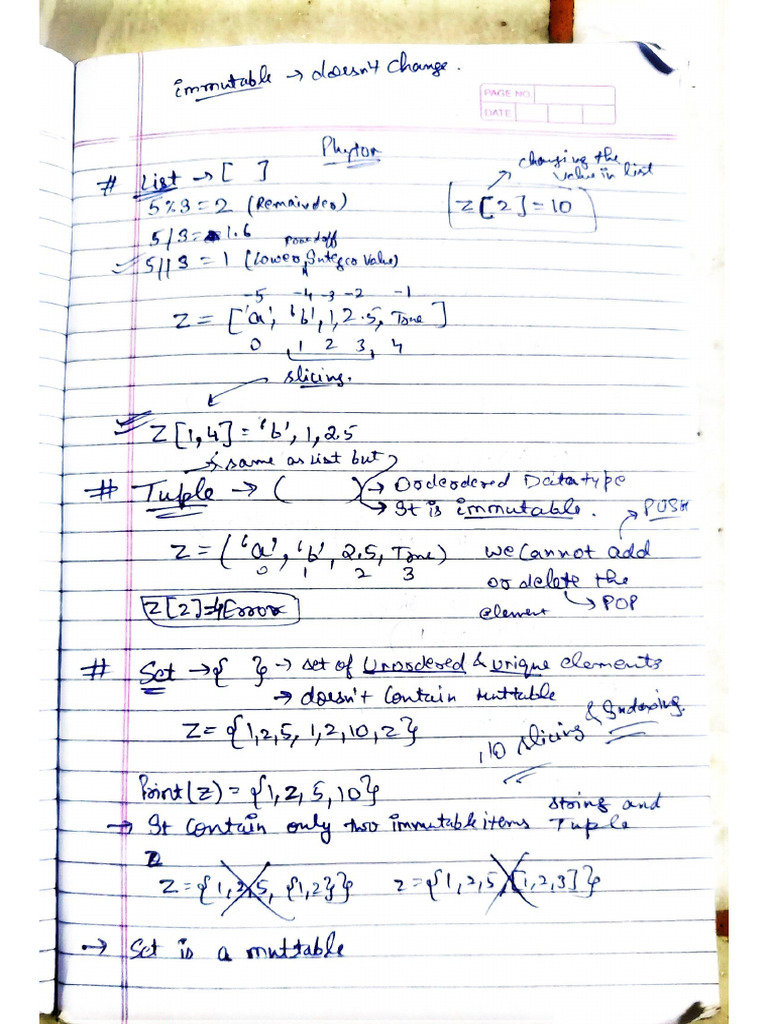 immutable → doesn't change.
PAGE NO.
DATE
Phyton
# List → [ ]
changing the
value in list
5%3=2 (Remainder)
Z[2]=10
5/3=1.6
Roundoff
5//3 = 1 (Lower, Integer value)
-5 -4 -3 -2 -1
Z = ['a', 'b', 1, 2.5, True]
0 1 2 3 4
slicing.
Z[1,4] = 'b', 1, 2.5
→ same as list but
# Tuple → ( ) → Orderdered Datatype
→ It is immutable.
PUSH
Z = ('a', 'b', 2.5, True) we cannot add
0 1 2 3
or delete the
Z[2]=4Error
element → POP
# Set → { } → set of Unordered & unique elements
→ doesn't contain muttable
Z = {1,2,5, 1,2,10,2}
slicing & Indexing.
Print(Z) = {1,2,5,10}
→ It contain only two immutable items string and Tuple
Z = {1,2,5, {1,2}} z = {1,2,5, [1,2,3]}
→ Set is a muttable